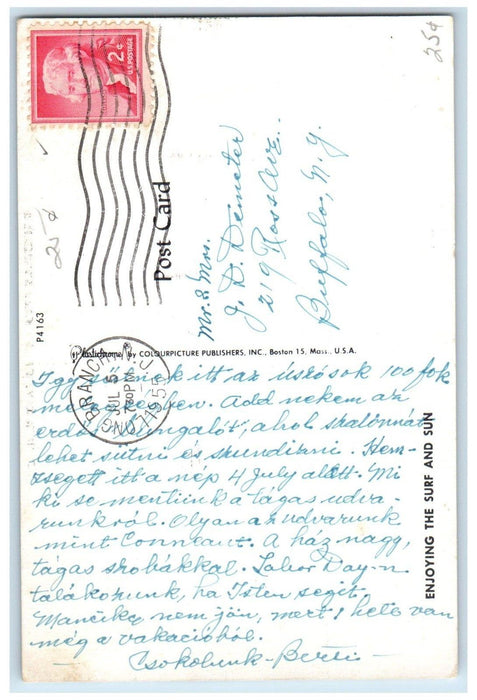 25¢
U.S. POSTAGE
2¢
25¢
Post Card
Mr. & Mrs.
J. D. Demeter
219 Ross Ave.
Buffalo, N.Y.
P4163
Plastichrome by COLOURPICTURE PUBLISHERS, INC., Boston 15, Mass., U.S.A.
LONG BRANCH
JUL 5
730 PM
195
N.J.
ENJOYING THE SURF AND SUN
Igy itt az úszósok 100 fok
melegben. Add nekem az
erdőt, ahol szalonnát
lehet sütni és shundizni. Hem-
zsegett itt a nép 4 July alatt. Mi
ki se mentünk a tágas udva-
runkról. Olyan az udvarunk
mint Conneaut. A ház nagy,
tágas szobákkal. Labor Day-n
találkozunk, ha Isten segít.
Mancika nem jön, mert 1 hete van
még a vakációból.
Csokolunk - Berti